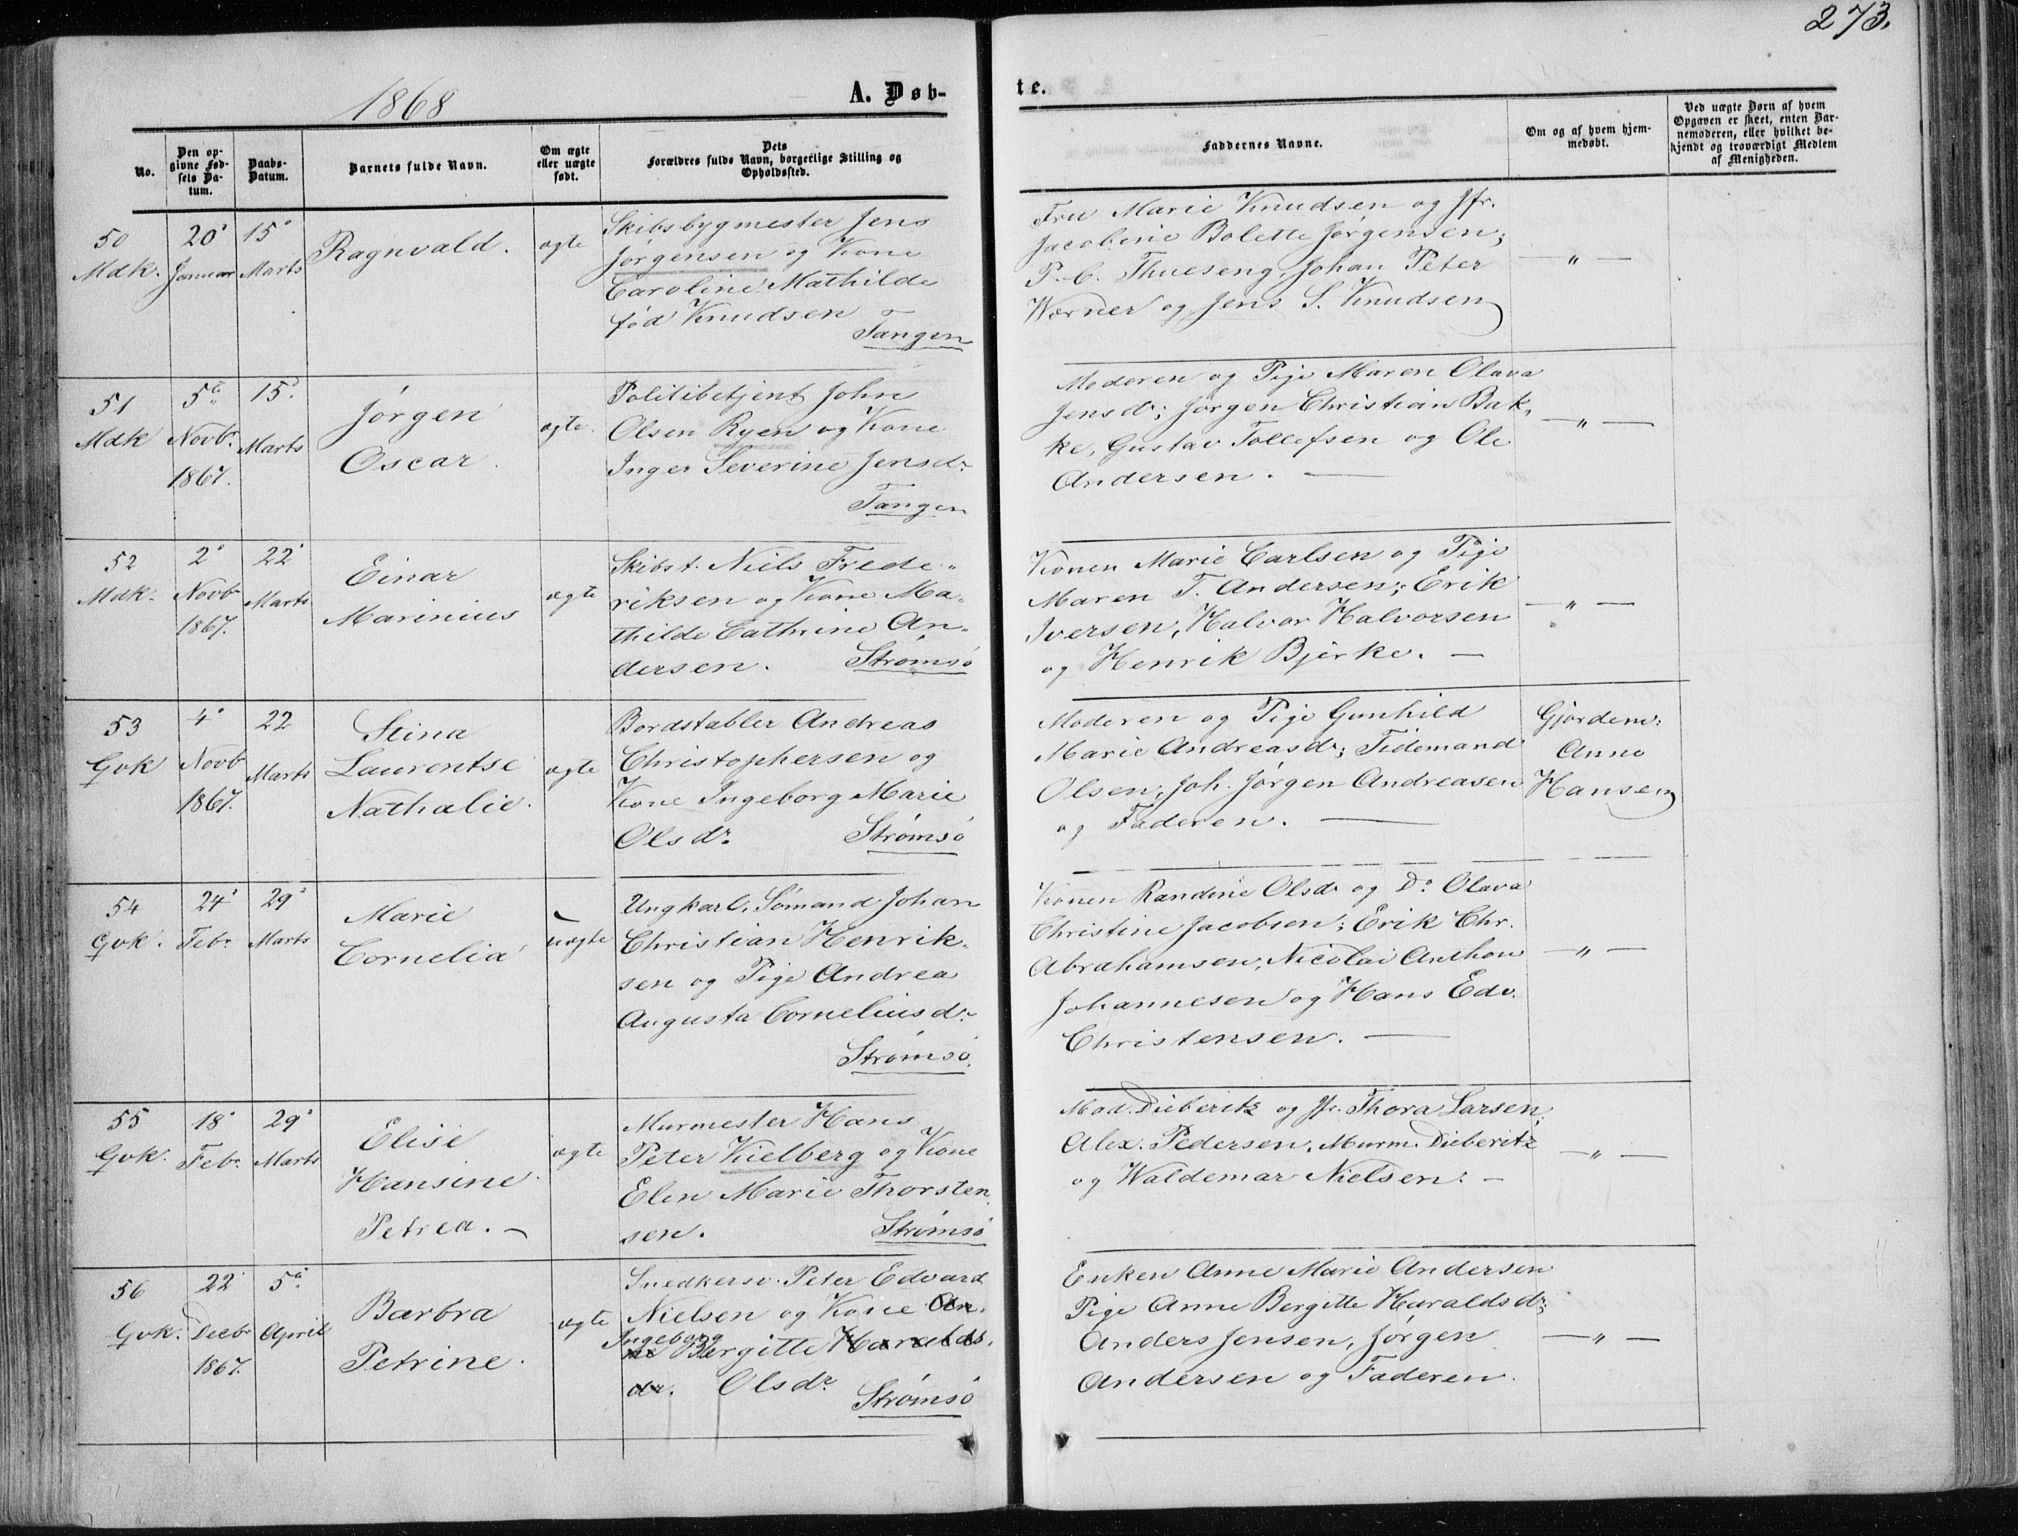 273.
1868
A. Døb-
te.
No.
Den op-
givne Fød-
sels Da-
tum.
Daabs-
Datum.
Barnets fulde Navn.
Om ægte
eller uægte
født.
Dets
Forældres fulde Navn, borgerlige Stilling og
Opholdssted.
Faddernes Navne.
Om og af hvem hjem-
medøbt.
Ved uægte Børn af hvem
Opgaven er skeet, enten Bar-
nemoderen, eller hvilket be-
kjendt og troværdigt Medlem
af Menigheden.
50
Mdk.
20'
Januar
15'
Marts
Ragnvald.
ægte
Skibsbygmester Jens
Jørgensen og Kone
Caroline Mathilde
fød Knudsen
Tangen
Fru Marie Knudsen og Jfr.
Jacobine Bolette Jørgensen;
P. C. Thueseng, Johan Peter
Wørner og Jens S. Knudsen
— „ —
51
Mdk
5te
Novbr.
1867.
15'
Marts
Jørgen
Oscar.
ægte.
Politibetjent John
Olsen Ryen og Kone
Inger Severine Jensdr.
Tangen
Moderen og Pige Maren Olava
Jensdr; Jørgen Christian Bak-
ke, Gustav Tollefsen og Ole
Andersen. —
— „ —
52
Mdk.
2'
Novbr
1867.
22'
Marts
Einar
Marinius
ægte
Skibst. Niels Frede-
riksen og Kone Ma-
thilde Cathrine An-
dersen.
Strømsø
Konen Marie Carlsen og Pige
Maren T. Andersen; Erik
Iversen, Halvor Halvorsen
og Henrik Bjerke. —
— „ —
53
Gvk
4'
Novb
1867.
22
Marts
Stina
Laurentse
Nathalie.
ægte
Bordstabler Andreas
Christophersen og
Kone Ingeborg Marie
Olsdr.
Strømsø
Moderen og Pige Gunhild
Marie Andreasdr; Tidemand
Olsen, Joh. Jørgen Andreasen
og Faderen. —
Gjordem:
Anne
Hansen
54
Gvk.
24'
Febr.
29'
Marts
Marie
Cornelia
uægte
Ungkarl, Sømand Johan
Christian Henrik-
sen og Pige Andrea
Augusta Corneliusdr.
Strømsø.
Konen Randine Olsdr og Do Olava
Christine Jacobsen; Erik Chr.
Abrahamsen, Nicolai Anthon
Johannesen og Hans Edv.
Christensen. —
— „ —
55
Gvk.
18'
Febr.
29'
Marts
Elise
Hansine
Petrea. —
ægte
Murmester Hans
Peter Kielberg og Kone
Elen Marie Thorsten
sen.
Strømsø
Mad. Dieberitz og Jfr. Thora Larsen.
Alex. Pedersen, Murm. Dieberitz
og Waldemar Nielsen. —
— „ —
56
Gvk.
22'
Decbr
1867.
5te
April
Barbra
Petrine.
ægte
Snedkersv. Peter Edvard
Nielsen og Kone An-
Ingeborg
ne Bergitte Haralds-
dr. Olsdr.
Strømsø
Enken Anne Marie Andersen
Pige Anne Bergitte Haraldsdr;
Anders Jensen, Jørgen
Andersen og Faderen.
— „ —